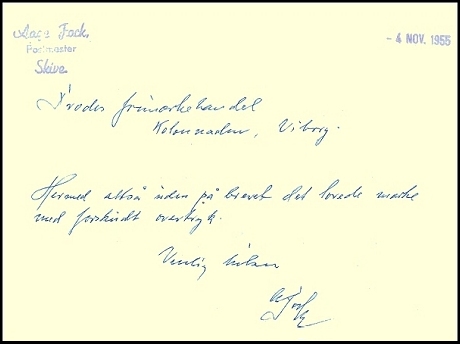 Aage Fock,
Postmester
Skive
- 4 NOV. 1955
Frodes frimærkehandel
Kolonnaden, Viborg.
Hermed altså inden på brevet det lovede mærke
med forskudt overtryk.
Venlig hilsen
AFock